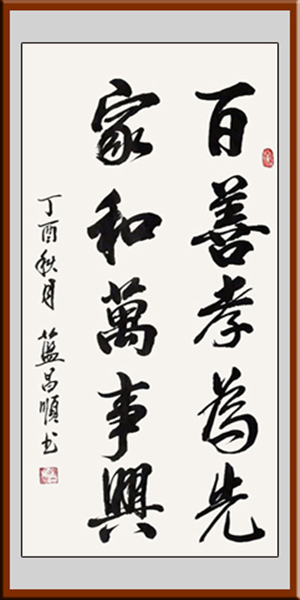 百善孝為先
家和萬事興
丁酉秋月 藍昌順书